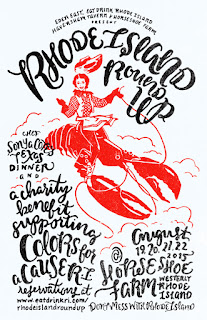 EDEN EAST, EAT DRINK RHODE ISLAND
HAVERSHAM TAVERN & HORSESHOE FARM
PRESENT
RHODE ISLAND
ROUND
UP
CHEF
Sonya Coté's
TEXAS
DINNER
AND
a charity
benefit
supporting
COLORS for
a CAUSE R.I.
reservations at
www.eatdrinkri.com/
rhodeislandroundup
August
19.20.21.22
2015
@
HORSE SHOE
FARM
WESTERLY
RHODE
ISLAND
DON'T MESS WITH RHODE ISLAND